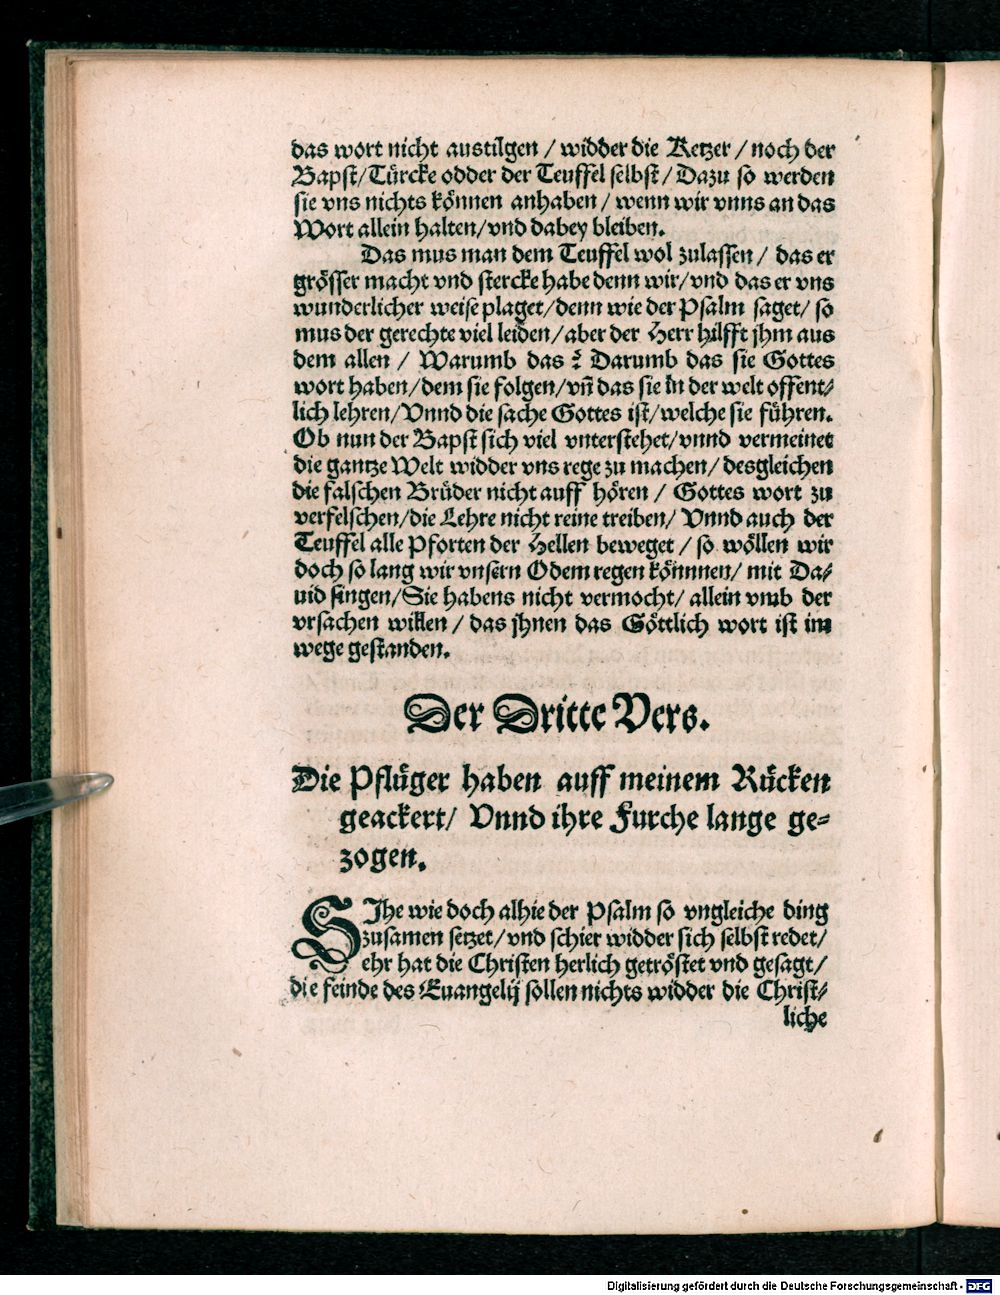 das wort nicht austilgen / widder die Ketzer / noch der
Bapst/Türcke odder der Teuffel selbst / Dazu so werden
sie vns nichts können anhaben / wenn wir vnns an das
Wort allein halten/vnd dabey bleiben.
Das mus man dem Teuffel wol zulassen / das er
grösser macht vnd stercke habe denn wir/vnd das er vns
wunderlicher weise plaget/denn wie der Psalm saget/ so
mus der gerechte viel leiden/aber der Herr hilfft jhm aus
dem allen / Warumb das ? Darumb das sie Gottes
wort haben/dem sie folgen/vn̄ das sie in der welt offent⸗
lich lehren/Vnnd die sache Gottes ist/welche sie führen.
Ob nun der Bapst sich viel vnterstehet/vnnd vermeinet
die gantze Welt widder vns rege zu machen/ desgleichen
die falschen Brüder nicht auff hören / Gottes wort zu
verfelschen/die Lehre nicht reine treiben/ Vnnd auch der
Teuffel alle Pforten der Hellen beweget / so wöllen wir
doch so lang wir vnsern Odem regen könnnen/ mit Da⸗
uid singen/Sie habens nicht vermocht/ allein vmb der
vrsachen willen / das jhnen das Göttlich wort ist im
wege gestanden.
Der Dritte Vers.
Die Pflüger haben auff meinem Rücken
geackert/ Vnnd ihre Furche lange ge⸗
zogen.
SJhe wie doch alhie der Psalm so vngleiche ding
zusamen setzet/vnd schier widder sich selbst redet/
ehr hat die Christen herlich getröstet vnd gesagt/
die feinde des Euangelij sollen nichts widder die Christ⸗
liche
Digitalisierung gefördert durch die Deutsche Forschungsgemeinschaft - DFG